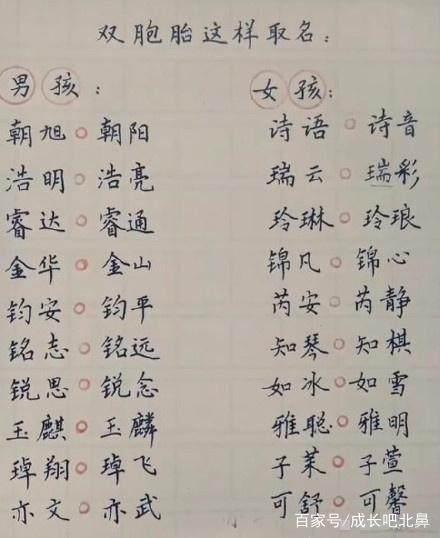 双胞胎这样取名：
男孩：
朝旭○朝阳
浩明○浩亮
睿达○睿通
金华○金山
钧安○钧平
铭志○铭远
锐思○锐念
玉麒○玉麟
琸翔○琸飞
亦文○亦武
女孩：
诗语○诗音
瑞云○瑞彩
玲琳○玲琅
锦凡○锦心
芮安○芮静
知琴○知棋
如冰○如雪
雅聪○雅明
子茱○子萱
可舒○可馨
百家号/成长吧北鼻